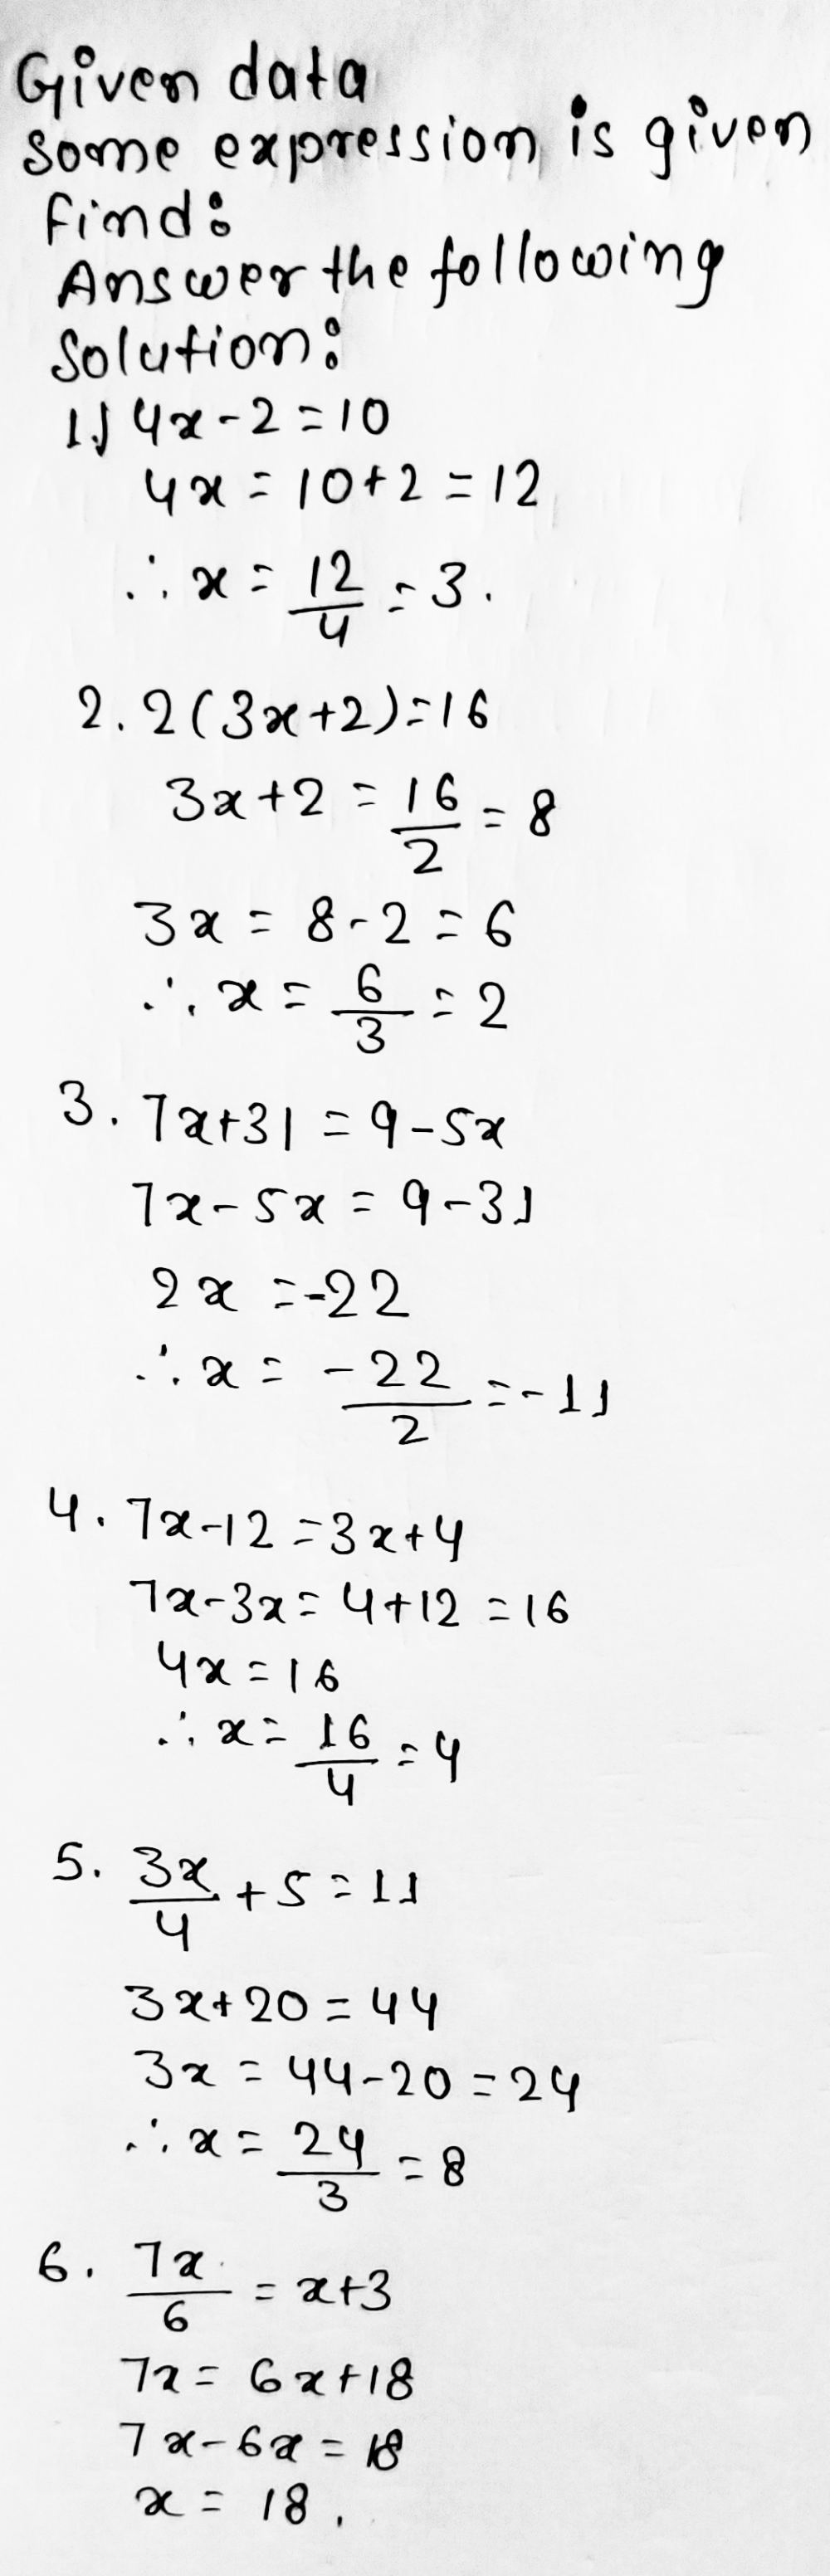 Given data
some expression is given
find:
Answer the following
Solution:
1.) 4x-2=10
4x = 10+2 = 12
∴ x = 12/4 = 3.
2. 2(3x+2)=16
3x+2 = 16/2 = 8
3x = 8-2 = 6
∴ x = 6/3 = 2
3. 7x+31 = 9-5x
7x-5x = 9-31
2x =-22
∴ x = -22/2 =-11
4. 7x-12 =3x+4
7x-3x= 4+12 =16
4x =16
∴ x= 16/4 =4
5. 3x/4 +5=11
3x+20=44
3x = 44-20 =24
∴ x = 24/3 = 8
6. 7x/6 = x+3
7x= 6x+18
7x-6x = 18
x = 18.